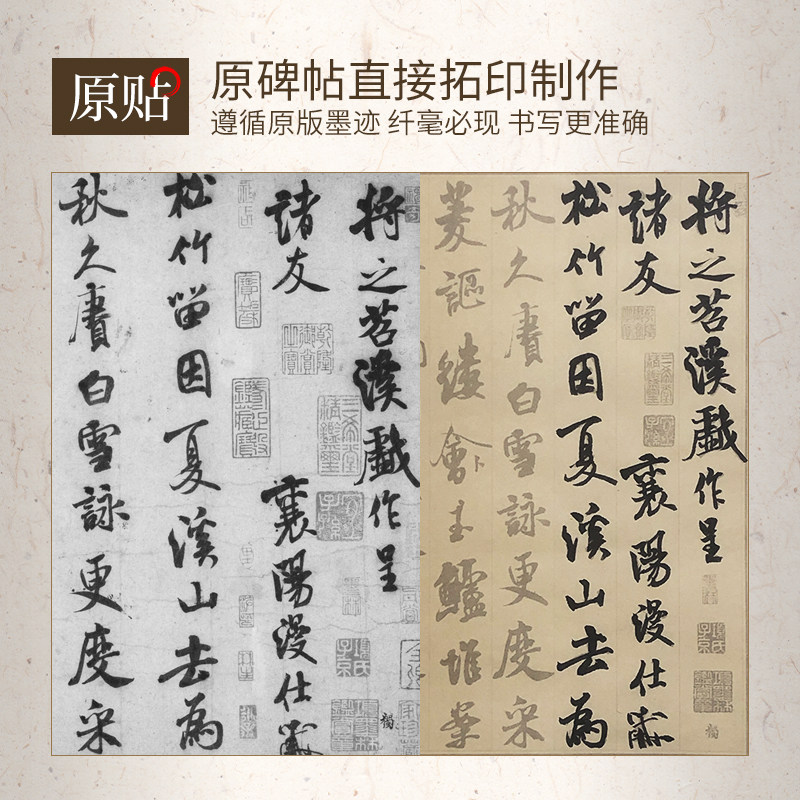 原贴
原碑帖直接拓印制作
遵循原版墨迹 纤毫必现 书写更准确
将之苕溪戏作呈
諸友
襄陽漫仕黻
松竹留因夏溪山去為
秋久賡白雪詠更度采
将之苕溪戯作呈
諸友
襄陽漫仕黻
松竹留因夏溪山去為
秋久賡白雪詠更度采
菱謳縷會玉鱸堆案